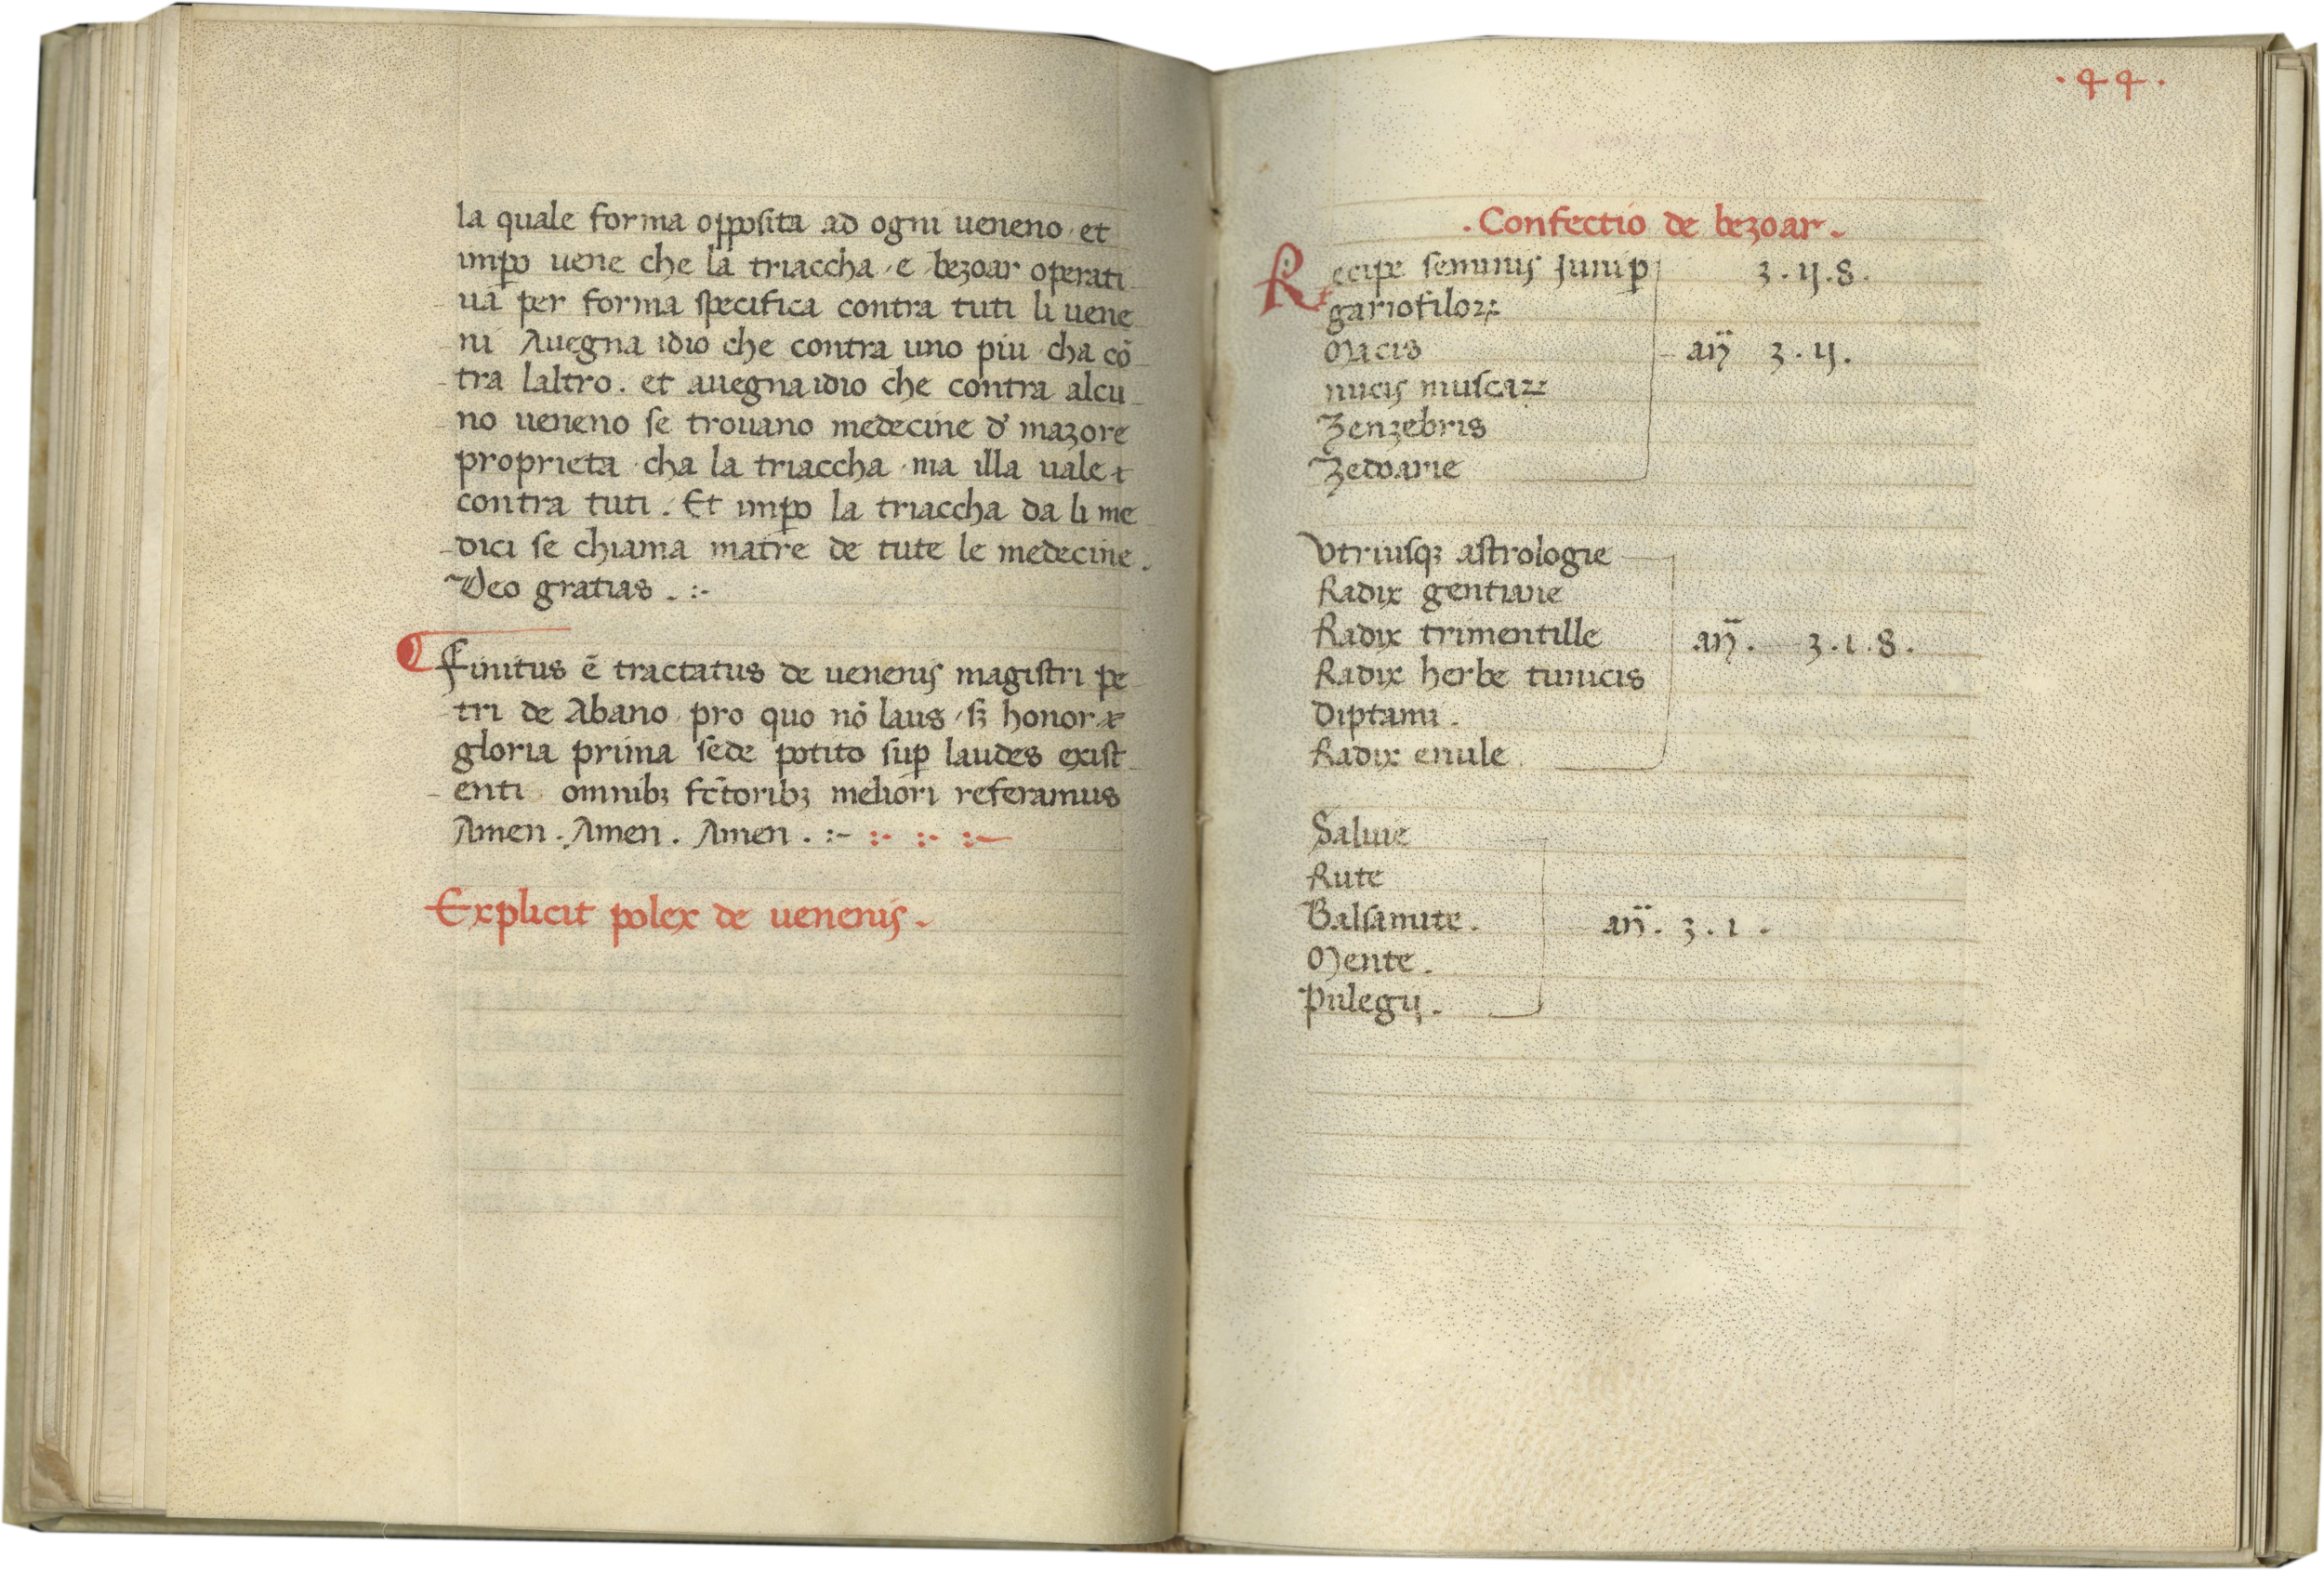 la quale forma opposita ad ogni ueneno et
imꝑo uene che la triaccha e bezoar operati
uā per forma specifica contra tuti li uene
ni Auegna idio che contra uno piu cha cō
tra laltro. et auegna idio che contra alcu
no ueneno se trouano medecine d' mazore
proprieta cha la triaccha ma illa uale
contra tuti. Et imꝑo la triaccha da li me
dici se chiama matre de tute le medecine.
Deo gratias. :-
Finitus ē tractatus de uenenis magistri pe
tri de Abano pro quo nō laus sꝫ honor
gloria prima sede potito suꝑ laudes exist
enti omnibꝫ fc̄toribꝫ meliori referamus
Amen. Amen. Amen. :- :- :- :-
Explicit polex de uenenis.
.44.
.Confectio de bezoar.
Recipe seminis Juniꝑ ʒ.ij.8.
gariofiloꝝ
Macis añ ʒ.ij.
nucis muscaꝝ
Zenzebris
Zedoarie
Vtriusqꝫ astrologie
Radix gentiane
Radix trimentille añ. ʒ.1.8.
Radix herbe tunicis
Diptami.
Radix enule.
Saluie
Rute
Balsamite. añ. ʒ.1.
Mente.
Pulegij.